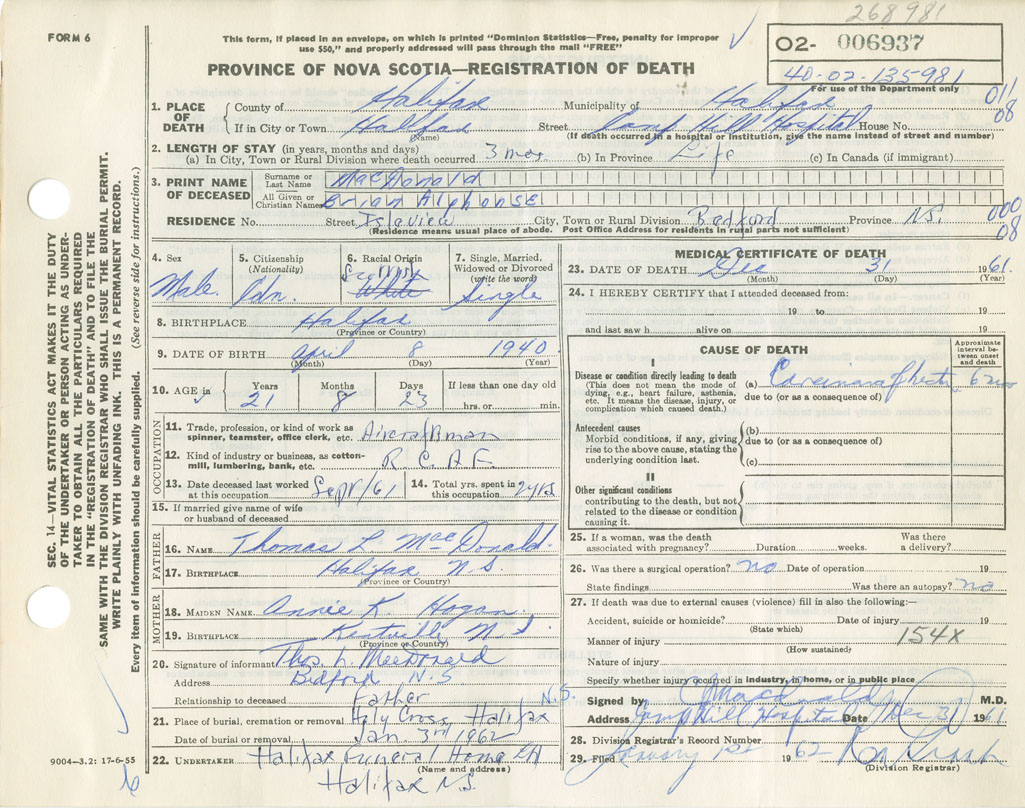 268981
FORM 6
This form, if placed in an envelope, on which is printed "Dominion Statistics—Free, penalty for improper
use $50," and properly addressed will pass through the mail "FREE"
O2- 006937
40-02-135981
For use of the Department only
PROVINCE OF NOVA SCOTIA—REGISTRATION OF DEATH
011
08
1. PLACE OF DEATH
County of Halifax Municipality of Halifax
If in City or Town Halifax Street Camp Hill Hospital House No.
(Name) (If death occurred in a hospital or Institution, give the name instead of street and number)
2. LENGTH OF STAY (in years, months and days)
(a) In City, Town or Rural Division where death occurred 3 mos. (b) In Province Life (c) In Canada (if immigrant)
3. PRINT NAME OF DECEASED
Surname or Last Name MacDonald
All Given or Christian Names Brian Alphonse
RESIDENCE No. Street Islaview City, Town or Rural Division Bedford Province N.S.
(Residence means usual place of abode. Post Office Address for residents in rural parts not sufficient)
000
08
4. Sex
Male
5. Citizenship
(Nationality)
Cdn.
6. Racial Origin
Scottish
White
7. Single, Married,
Widowed or Divorced
(write the word)
Single
8. BIRTHPLACE Halifax
(Province or Country)
9. DATE OF BIRTH April 8 1940
(Month) (Day) (Year)
10. AGE in Years Months Days If less than one day old
21 8 23 hrs. or min.
OCCUPATION
11. Trade, profession, or kind of work as
spinner, teamster, office clerk, etc. Aircraftman
12. Kind of industry or business, as cotton-
mill, lumbering, bank, etc. R.C.A.F.
13. Date deceased last worked
at this occupation Sept/61
14. Total yrs. spent in
this occupation 2 yrs
15. If married give name of wife
or husband of deceased
FATHER
16. NAME Thomas L. MacDonald
17. BIRTHPLACE Halifax N.S.
(Province or Country)
MOTHER
18. MAIDEN NAME Annie K. Hogan
19. BIRTHPLACE Kentville N.S.
(Province or Country)
20. Signature of informant Thos L. MacDonald
Address Bedford N.S
Relationship to deceased Father N.S.
21. Place of burial, cremation or removal Holy Cross, Halifax
Date of burial or removal Jan. 3rd 1962
22. UNDERTAKER Halifax Funeral Home
(Name and address)
Halifax N.S.
9004—3.2: 17-6-55
MEDICAL CERTIFICATE OF DEATH
23. DATE OF DEATH Dec 31 1961.
(Month) (Day) (Year)
24. I HEREBY CERTIFY that I attended deceased from:
19 to 19
and last saw h alive on 19
CAUSE OF DEATH
Approximate
interval be-
tween onset
and death
I
Disease or condition directly leading to death
(This does not mean the mode of
dying, e.g., heart failure, asthenia,
etc. It means the disease, injury, or
complication which caused death.)
(a) Carcinoma of rectum 6 mos
due to (or as a consequence of)
Antecedent causes
Morbid conditions, if any, giving
rise to the above cause, stating the
underlying condition last.
(b)
due to (or as a consequence of)
(c)
II
Other significant conditions
contributing to the death, but not
related to the disease or condition
causing it.
25. If a woman, was the death
associated with pregnancy? Duration weeks. Was there
a delivery?
26. Was there a surgical operation? no Date of operation 19
State findings Was there an autopsy? no
27. If death was due to external causes (violence) fill in also the following:—
Accident, suicide or homicide? Date of injury 19
(State which)
Manner of injury 154X
(How sustained)
Nature of injury
Specify whether injury occurred in industry, in home, or in public place
Signed by MacDonald M.D.
Address Camp Hill Hospital Date Dec 31 1961
28. Division Registrar's Record Number
29. Filed January 1st 1962
(Division Registrar)
SEC. 14—VITAL STATISTICS ACT MAKES IT THE DUTY
OF THE UNDERTAKER OR PERSON ACTING AS UNDER-
TAKER TO OBTAIN ALL THE PARTICULARS REQUIRED
IN THE "REGISTRATION OF DEATH" AND TO FILE THE
SAME WITH THE DIVISION REGISTRAR WHO SHALL ISSUE THE BURIAL PERMIT.
WRITE PLAINLY WITH UNFADING INK. THIS IS A PERMANENT RECORD.
Every item of information should be carefully supplied. (See reverse side for instructions.)